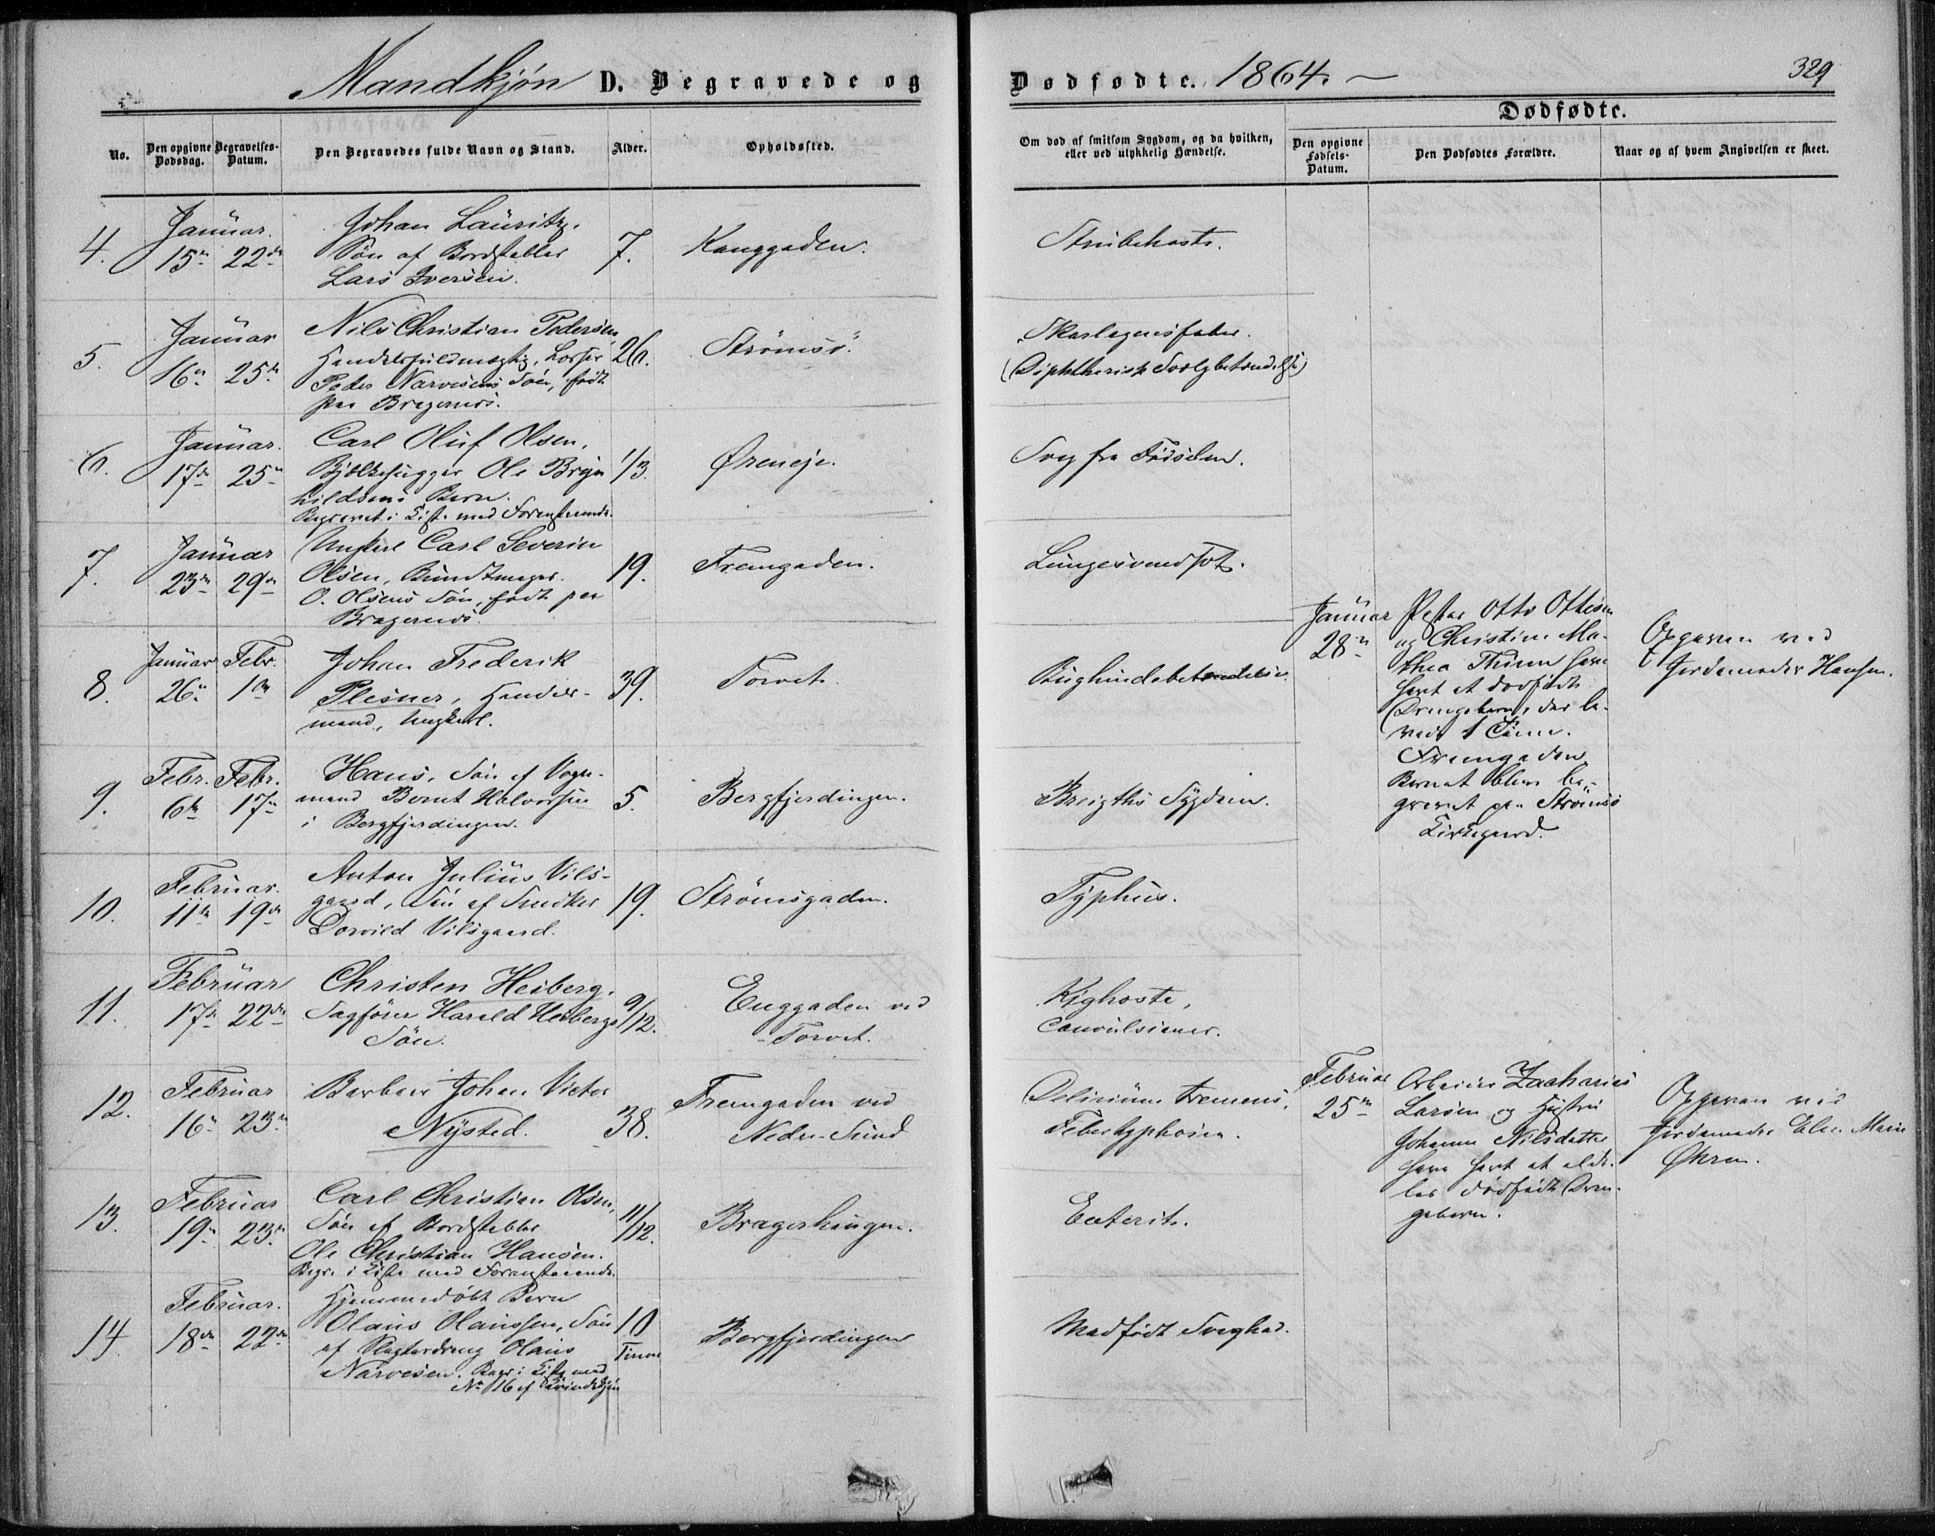 Mandkjøn D. Begravede og
Dødfødte. 1864. —
329
No.
Den opgivne Dødsdag.
Begravelses-Datum.
Den Begravedes fulde Navn og Stand.
Alder.
Opholdssted.
Om død af smitsom Sygdom, og da hvilken,
eller ved ulykkelig Hændelse.
Dødfødte.
Den opgivne Fødsels-Datum.
Den Dødfødtes Forældre.
Naar og af hvem Angivelsen er skeet.
4.
Januar.
15de 22de
Johan Lauritz,
Søn af Bordstabler
Lars Iversen.
7.
Kanggaden.
Strubehoste.
5.
Januar
16de 25de
Nils Christian Pedersen
Handelsfuldmægtig, Losser
Peder Narvesens Søn, født
paa Bragernes.
26.
Strømsø.
Skarlagensfeber.
(Diphtherisk Svælgbetændelse)
6.
Januar.
17de 25de
Carl Oluf Olsen,
Bjelkehugger Ole Bryn
hildsens Barn.
Begravet i Kiste med Foranstaaende.
1/3.
Øreneje.
Svag fra Fødselen.
7.
Januar
23de 29de
Ungkarl Carl Severin
Olsen, Bundtmager
O. Olsens Søn, født paa
Bragernes.
19.
Fremgaden.
Lungesvindsot.
8.
Januar Febr.
26de 1ste
Johan Frederik
Plesner, Handels-
mand, Ungkarl.
39.
Torvet.
Bughindebetændelse.
Januar
28de
Peter Otto Ottesen
og Christine Ma-
thea Thrine have
havt et dødfødt
Drengebarn, der le-
vede 1 Time.
Fremgaden
Barnet blev be-
gravet paa Strømsø
Kirkegaard.
Opgaven ved
Jordemoder Hansen.
9.
Febr. Febr.
6te 17de
Hans, Søn af Vogn-
mand Bernt Halvorsen
i Bergfjerdingen.
5.
Bergfjerdingen.
Breigths Sygdom.
10.
Februar.
11te 19de
Anton Julius Vils-
gaard, Søn af Snedker
Dorvild Vilsgaard.
19.
Strømsgaden.
Typhus.
11.
Februar
17de 22de
Christen Heiberg,
Sagfører Harald Heibergs
Søn.
9/12.
Enggaden ved
Torvet.
Kighoste,
Convulsioner.
12.
Februar
16de 23de
Barber Johan Victor
Nysted.
38.
Fremgaden ved
Nedre-Sund
Delirium tremens,
Febertyphosa.
Februar
25de
Arbeider Zacharias
Larsen og Hustru
Johanne Nilsdatter
have havt et
dødfødt Dren-
gebarn.
Opgaven ved
Jordemoder Elen Marie
Økern.
13.
Februar
19de 23de
Carl Christian Olsen,
Søn af Bordstabler
Ole Christian Hansen.
Begr. i Kiste med Foranstaaende.
11/12.
Bragerhaugen.
Enterit.
14.
Februar.
18de 22de
Hjemmedøbt Barn
Olaus Olaussen, Søn
af Slagterdreng Olaus
Narvesen. Begr. i Kiste med
No 16 af Kvindekjøn
10
Timer
Bergfjerdingen
Medfødt Svaghed.